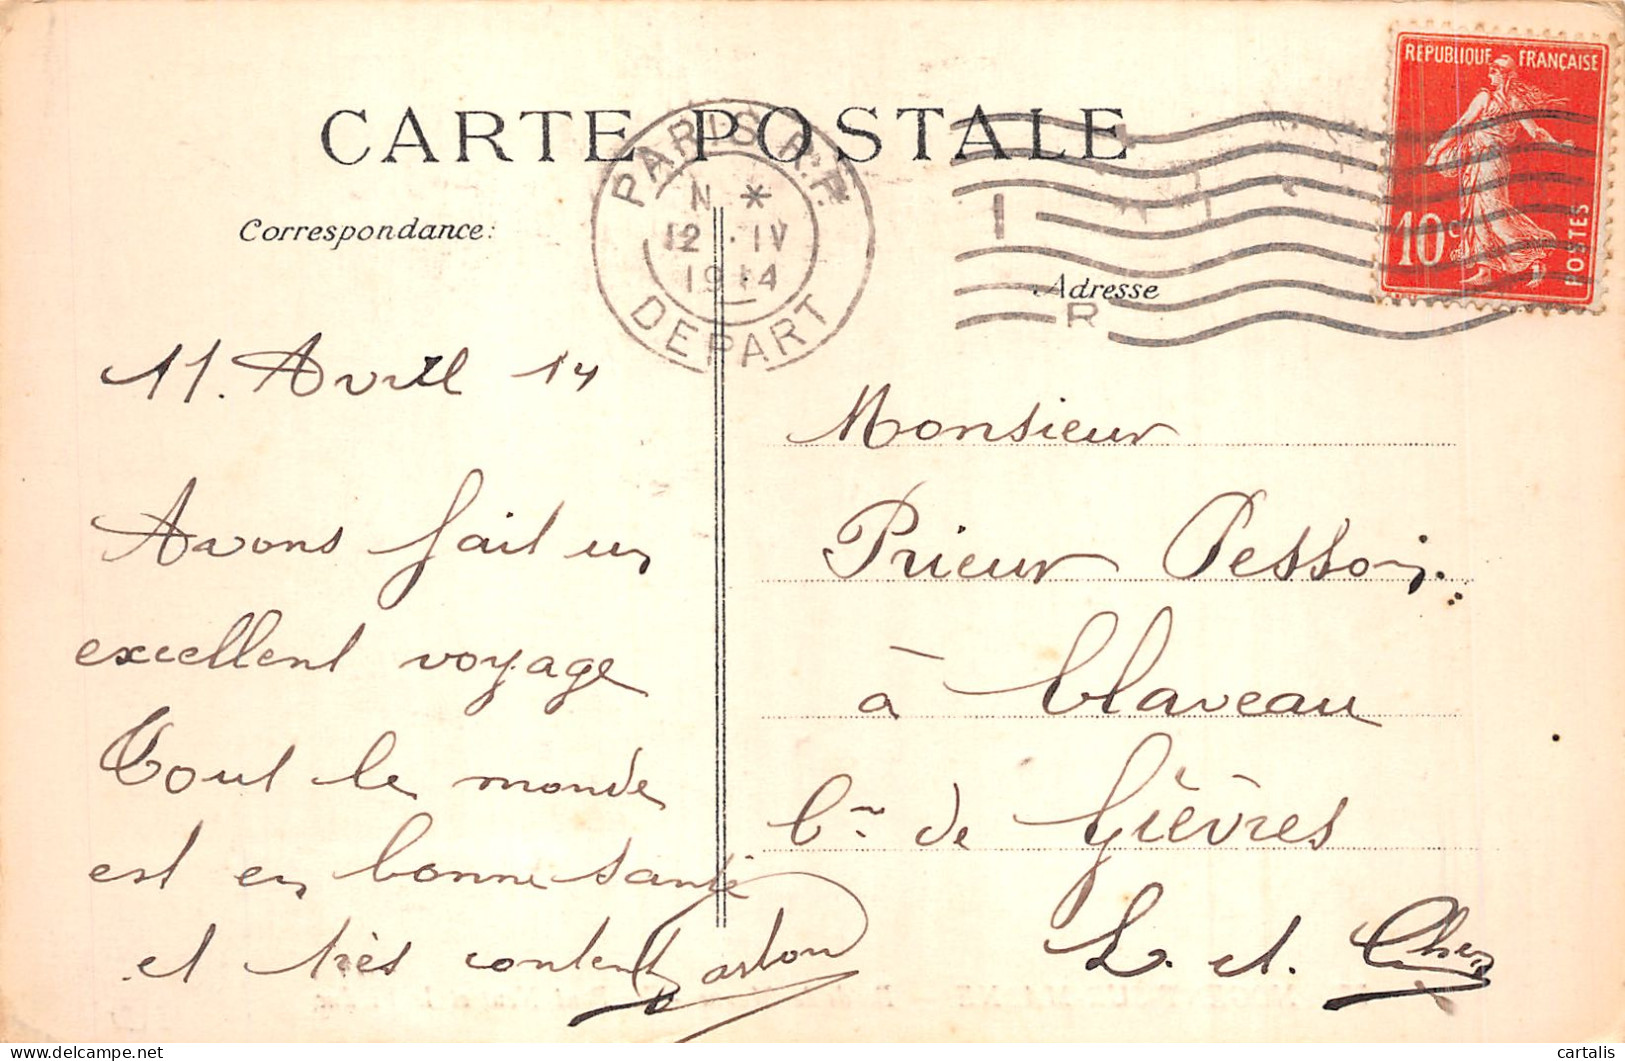 CARTE POSTALE
Correspondance:
PARIS R.P.
N *
12 · IV
1914
DEPART
I
R
REPUBLIQUE FRANÇAISE
10c
POSTES
Adresse
11. Avril 14
Avons fait un
excellent voyage
Tout le monde
est en bonne santé
et très content
Monsieur
Prieur
à Claveau
Cne de Gièvres
L. et. Cher
cartalis
delcampe.net